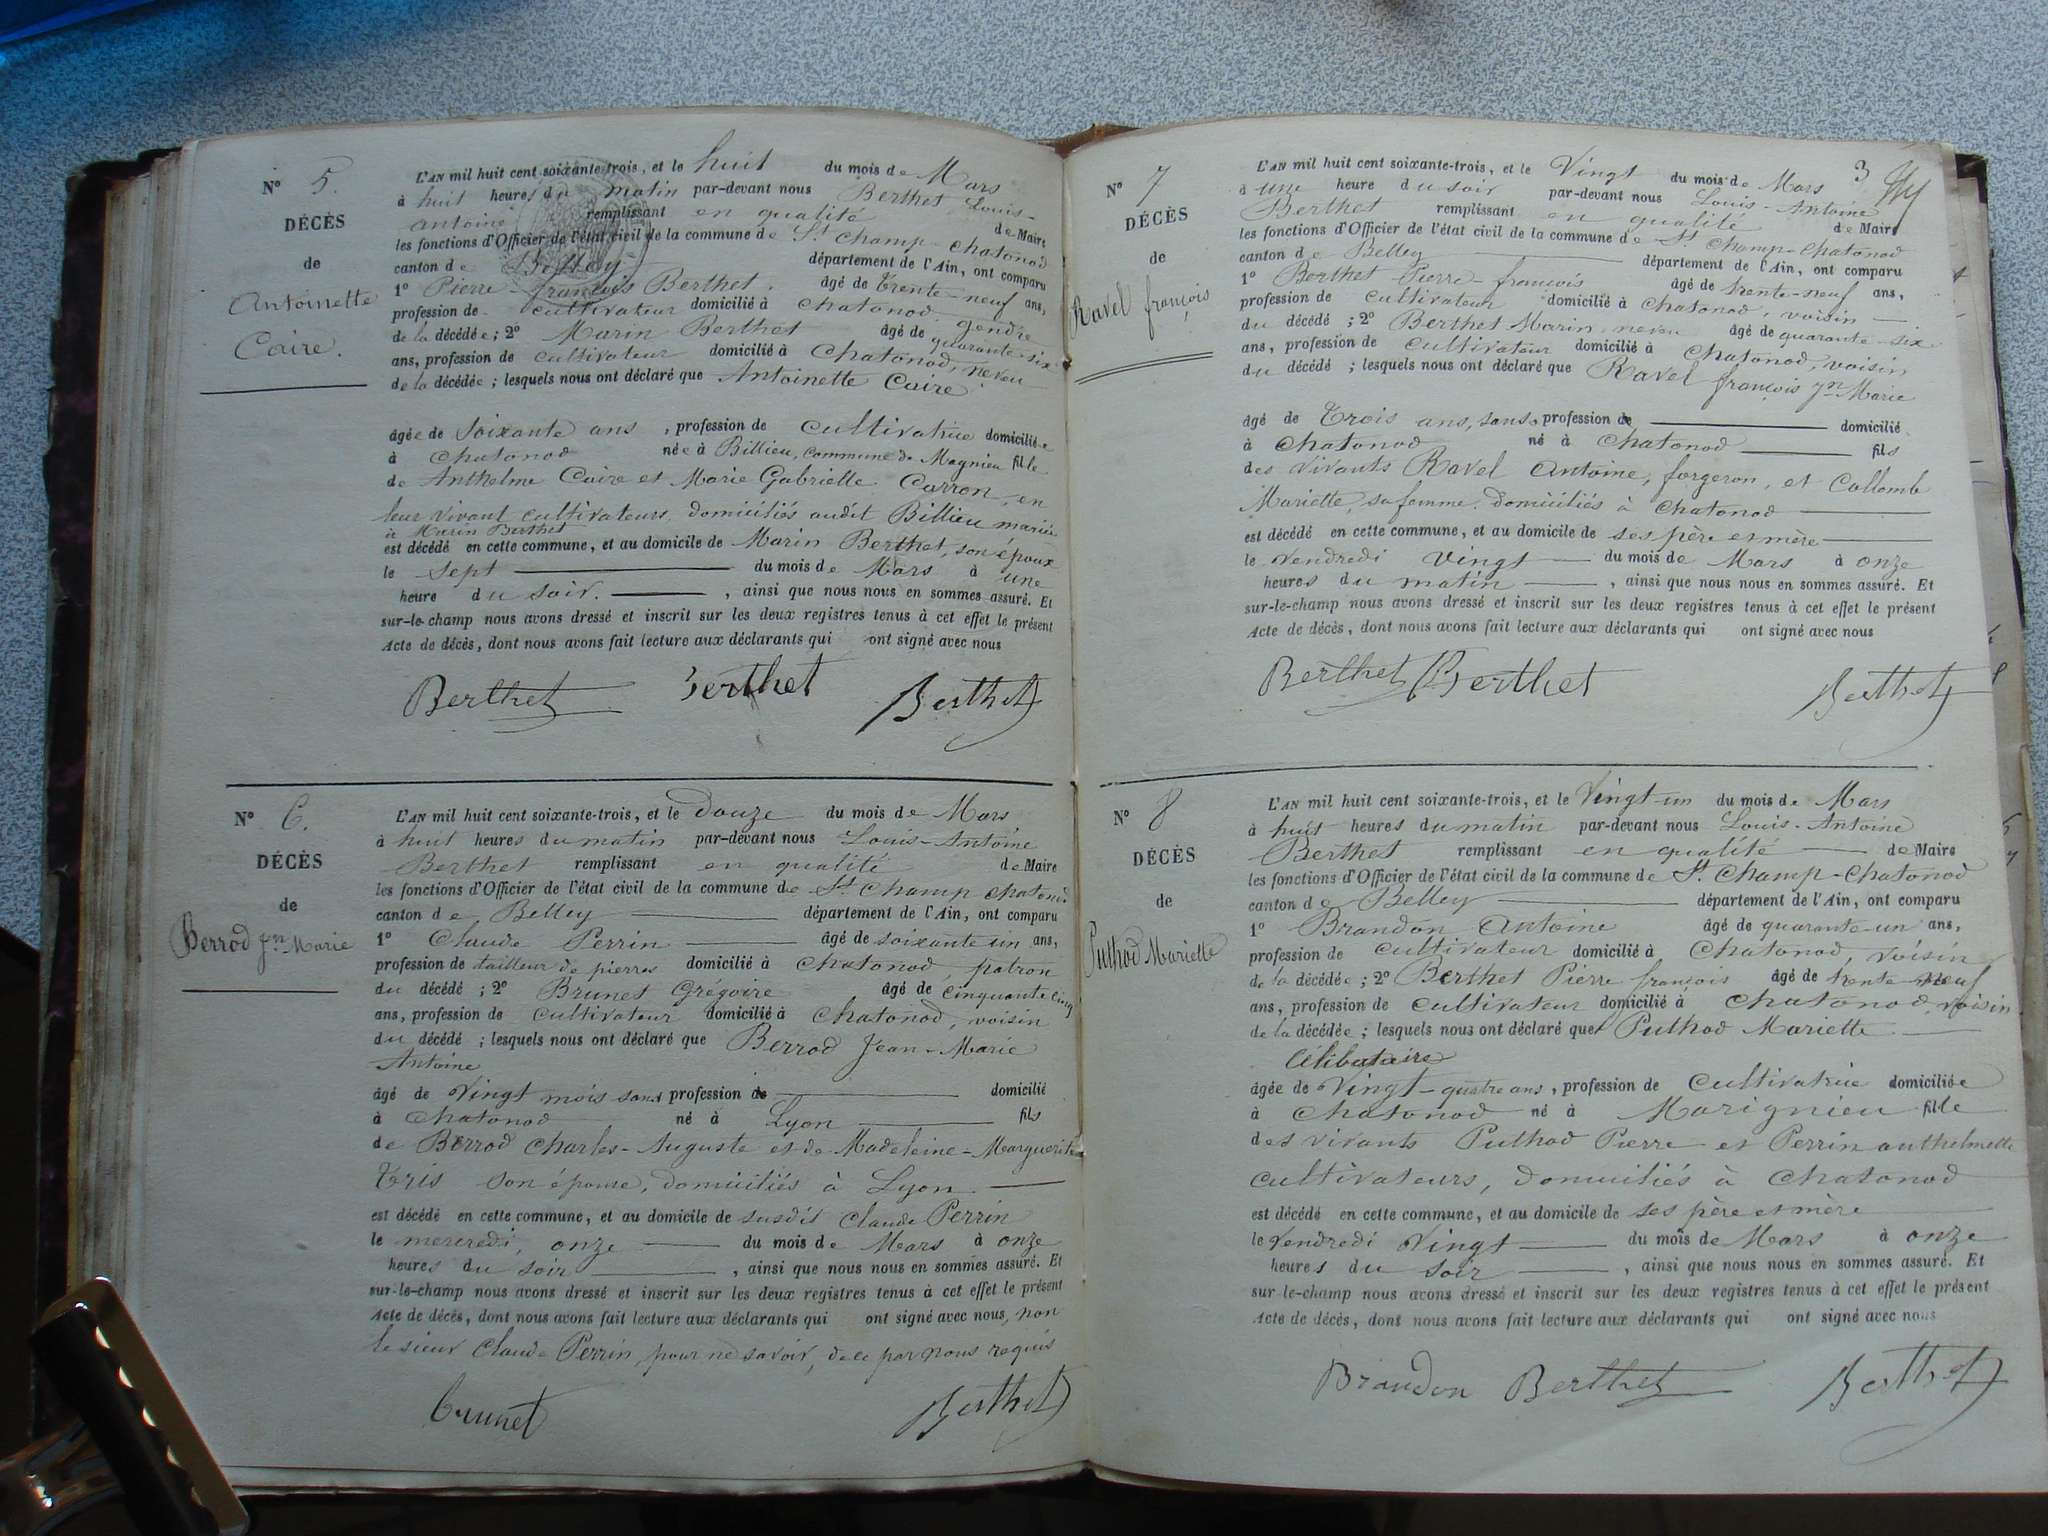 N° 5.
DÉCÈS
de
Antoinette
Caire.
L'AN mil huit cent soixante-trois, et le huit du mois de Mars
à huit heures du matin par-devant nous Berthet Louis-
Antoine remplissant en qualité de Maire
les fonctions d'Officier de l'état civil de la commune de St Champ-Chatonod
canton de Belley département de l'Ain, ont comparu
1° Pierre-françois Berthet. âgé de Trente-neuf ans,
profession de cultivateur domicilié à Chatonod gendre
de la décédée; 2° Marin Berthet âgé de quarante-six
ans, profession de cultivateur domicilié à Chatonod, neveu
de la décédée; lesquels nous ont déclaré que Antoinette Caire
âgée de Soixante ans, profession de cultivatrice domiciliée
à Chatonod née à Billieu, commune de Magnieu fille
de Anthelme Caire et Marie Gabrielle Carron, en
leur vivant cultivateurs, domiciliés audit Billieu mariée
à Marin Berthet
est décédé en cette commune, et au domicile de Marin Berthet, son époux
le sept du mois de Mars à une
heure du soir. , ainsi que nous nous en sommes assuré. Et
sur-le-champ nous avons dressé et inscrit sur les deux registres tenus à cet effet le présent
Acte de décès, dont nous avons fait lecture aux déclarants qui ont signé avec nous
Berthet Berthet Berthet
N° 6.
DÉCÈS
de
Berrod Jn Marie
L'AN mil huit cent soixante-trois, et le douze du mois de Mars
à huit heures du matin par-devant nous Louis-Antoine
Berthet remplissant en qualité de Maire
les fonctions d'Officier de l'état civil de la commune de St Champ Chatonod
canton de Belley département de l'Ain, ont comparu
1° Claude Perrin âgé de soixante un ans,
profession de tailleur de pierres domicilié à Chatonod, patron
du décédé; 2° Brunet Grégoire âgé de cinquante cinq
ans, profession de cultivateur domicilié à Chatonod, voisin
du décédé; lesquels nous ont déclaré que Berrod Jean-Marie
Antoine
âgé de Vingt mois sans profession de domicilié
à Chatonod né à Lyon fils
de Berrod Charles-Auguste et de Madeleine-Marguerite
Tris son épouse, domiciliés à Lyon
est décédé en cette commune, et au domicile de susdit Claude Perrin
le mercredi, onze du mois de Mars à onze
heures du soir , ainsi que nous nous en sommes assuré. Et
sur-le-champ nous avons dressé et inscrit sur les deux registres tenus à cet effet le présent
Acte de décès, dont nous avons fait lecture aux déclarants qui ont signé avec nous, non
le sieur Claude Perrin, pour ne savoir, de ce par nous requis
Brunet Berthet
3
N° 7
DÉCÈS
de
Ravel françois
L'AN mil huit cent soixante-trois, et le Vingt du mois de Mars
à une heure du soir par-devant nous Louis-Antoine
Berthet remplissant en qualité de Maire
les fonctions d'Officier de l'état civil de la commune de St Champ-Chatonod
canton de Belley département de l'Ain, ont comparu
1° Berthet Pierre-françois âgé de trente-neuf ans,
profession de cultivateur domicilié à Chatonod, voisin
du décédé; 2° Berthet Marin neveu âgé de quarante-six
ans, profession de cultivateur domicilié à Chatonod, voisin
du décédé; lesquels nous ont déclaré que Ravel françois Jn Marie
âgé de Trois ans, sans profession de domicilié
à Chatonod né à Chatonod fils
des vivants Ravel Antoine, forgeron, et Collomb
Mariette, sa femme. Domiciliés à Chatonod
est décédé en cette commune, et au domicile de ses père et mère
le Vendredi Vingt du mois de Mars à onze
heures du matin , ainsi que nous nous en sommes assuré. Et
sur-le-champ nous avons dressé et inscrit sur les deux registres tenus à cet effet le présent
Acte de décès, dont nous avons fait lecture aux déclarants qui ont signé avec nous
Berthet Berthet Berthet
N° 8
DÉCÈS
de
Puthod Mariette
L'AN mil huit cent soixante-trois, et le Vingt-un du mois de Mars
à huit heures du matin par-devant nous Louis-Antoine
Berthet remplissant en qualité de Maire
les fonctions d'Officier de l'état civil de la commune de St. Champ-Chatonod
canton de Belley département de l'Ain, ont comparu
1° Brandon Antoine âgé de quarante-un ans,
profession de cultivateur domicilié à Chatonod, voisin
de la décédée; 2° Berthet Pierre françois âgé de trente neuf
ans, profession de cultivateur domicilié à Chatonod, voisin
de la décédée; lesquels nous ont déclaré que Puthod Mariette
Célibataire
âgée de Vingt-quatre ans, profession de Cultivatrice domiciliée
à Chatonod né à Marignieu fille
des vivants Puthod Pierre et Perrin anthelmette
cultivateurs, domiciliés à Chatonod
est décédé en cette commune, et au domicile de ses père et mère
le Vendredi Vingt du mois de Mars à onze
heures du soir , ainsi que nous nous en sommes assuré. Et
sur-le-champ nous avons dressé et inscrit sur les deux registres tenus à cet effet le présent
Acte de décès, dont nous avons fait lecture aux déclarants qui ont signé avec nous
Brandon Berthet Berthet